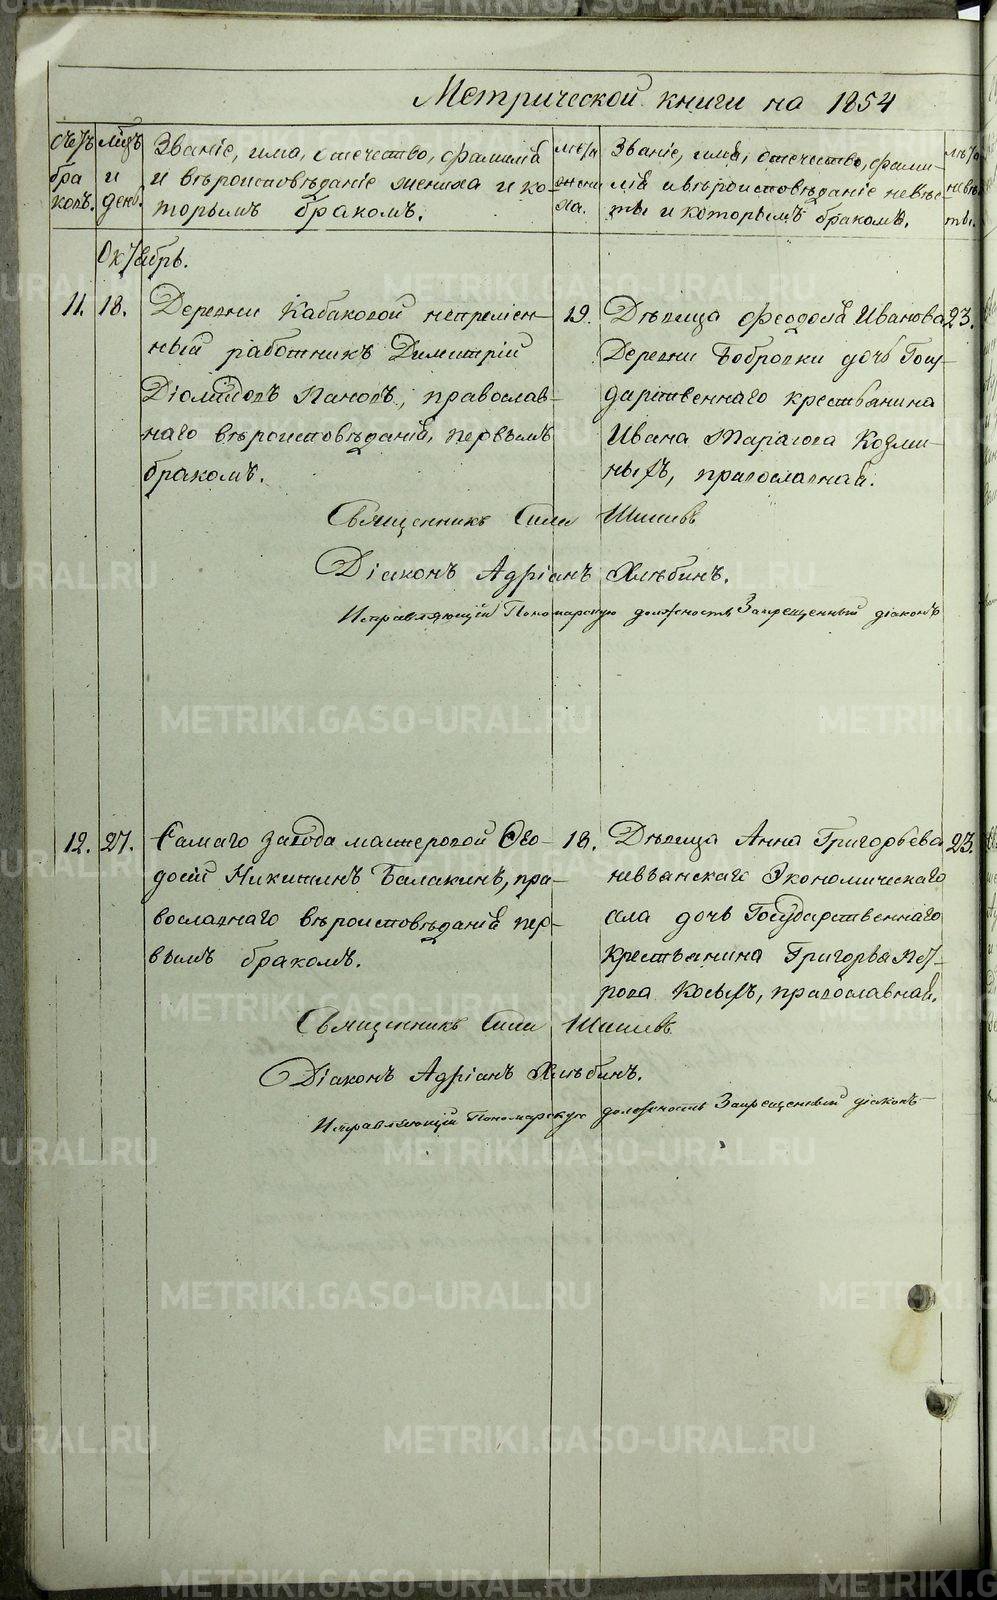 Метрической книги на 1854
Счетъ браковъ.
мцъ и день.
Званіе, имя, отечество, фамилія
и вѣроисповѣданіе жениха и ко-
торымъ бракомъ.
лѣта жениха.
Званіе, имя, отечество, фами-
лія и вѣроисповѣданіе невѣс-
ты и которымъ бракомъ.
лѣта невѣсты.
Октябрь.
11. 18. Деревни Кабаковой непремѣн-
ный работникъ Димитрій
Діомидовъ Пановъ, православ-
наго вѣроисповѣданія, первымъ
бракомъ.
19. Дѣвица Феодосія Иванова 23.
Деревни Бобровки дочь Госу-
дарственнаго крестьянина
Ивана Тарасова Козми-
ныхъ, православная.
Священникъ Сила Шишевъ
Діаконъ Адріанъ Хлѣбинъ.
Исправляющій Пономарскую должность Запрещенный діаконъ
12. 27. Самаго завода мастеровой Ѳео-
досій Никитинъ Балакинъ, пра-
вославнаго вѣроисповѣданія пер-
вымъ бракомъ.
18. Дѣвица Анна Григорьева 23.
Невьянскаго Экономическаго
села дочь Государственнаго
крестьянина Григорья Пет-
рова Косыхъ, православная.
Священникъ Сила Шишевъ
Діаконъ Адріанъ Хлѣбинъ.
Исправляющій Пономарскую должность Запрещенный діаконъ
METRIKI.GASO-URAL.RU